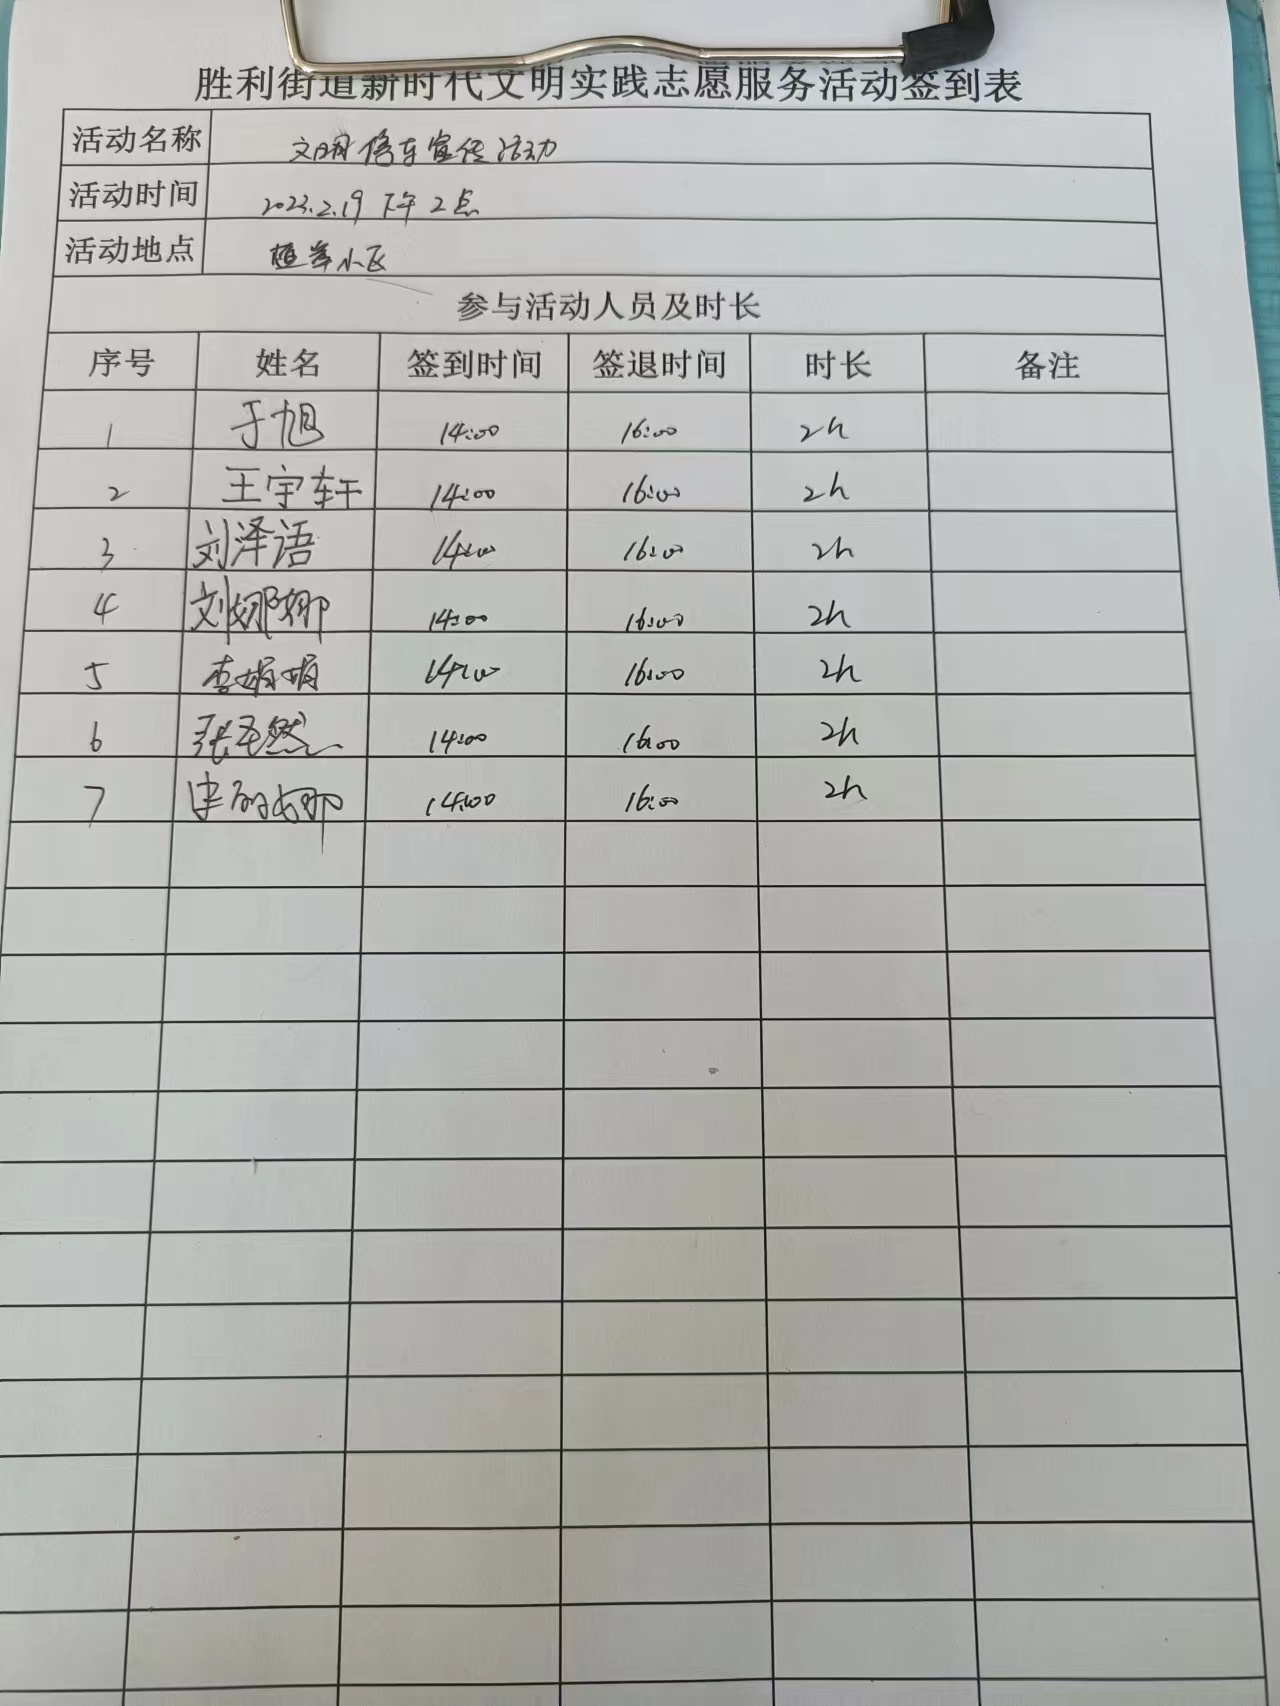 胜利街道新时代文明实践志愿服务活动签到表
活动名称 文明停车宣传活动
活动时间 2023.2.19 下午2点
活动地点 小区
参与活动人员及时长
序号 姓名 签到时间 签退时间 时长 备注
1 于旭 14:00 16:00 2h
2 王宇轩 14:00 16:00 2h
3 刘泽语 14:00 16:00 2h
4 刘娜娜 14:00 16:00 2h
5 李娟娟 14:00 16:00 2h
6 张 然 14:00 16:00 2h
7 娜 14:00 16:00 2h